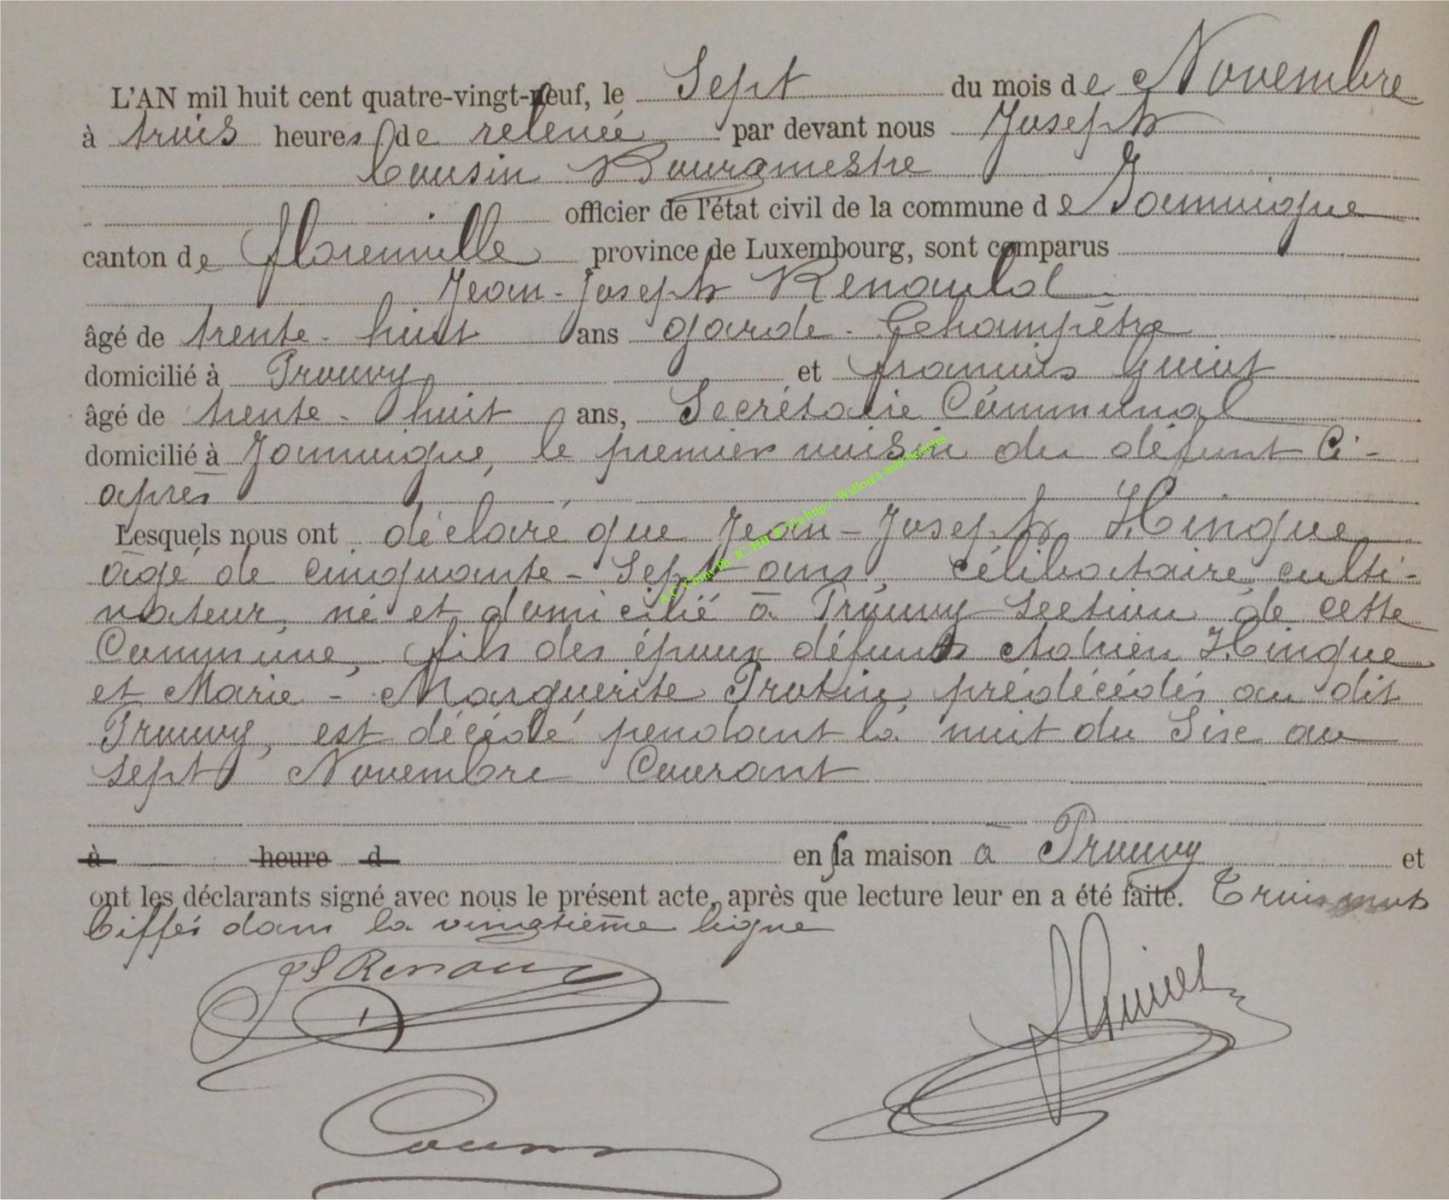 L'AN mil huit cent quatre-vingt-neuf, le Sept du mois de Novembre
à trois heures de relevée par devant nous Joseph
Cousin Bourgmestre
officier de l'état civil de la commune de Jamoigne
canton de Florenville province de Luxembourg, sont comparus
Jean-Joseph Renauld
âgé de trente-huit ans garde-Champêtre
domicilié à Prouvy et François Guiot
âgé de trente-huit ans, Secrétaire Communal
domicilié à Jamoigne, le premier voisin du défunt Ci-
après
Lesquels nous ont déclaré que Jean-Joseph Hinque
âgé de cinquante-Sept ans, célibataire culti-
vateur, né et domicilié à Prouvy Section de cette
Commune, fils des époux défunts Adrien Hinque
et Marie-Marguerite Protin, prédécédés au dit
Prouvy, est décédé pendant la nuit du Six au
Sept Novembre Courant
à heure d en sa maison à Prouvy et
ont les déclarants signé avec nous le présent acte, après que lecture leur en a été faite. Trois mots
biffés dans la vingtième ligne
Cousin